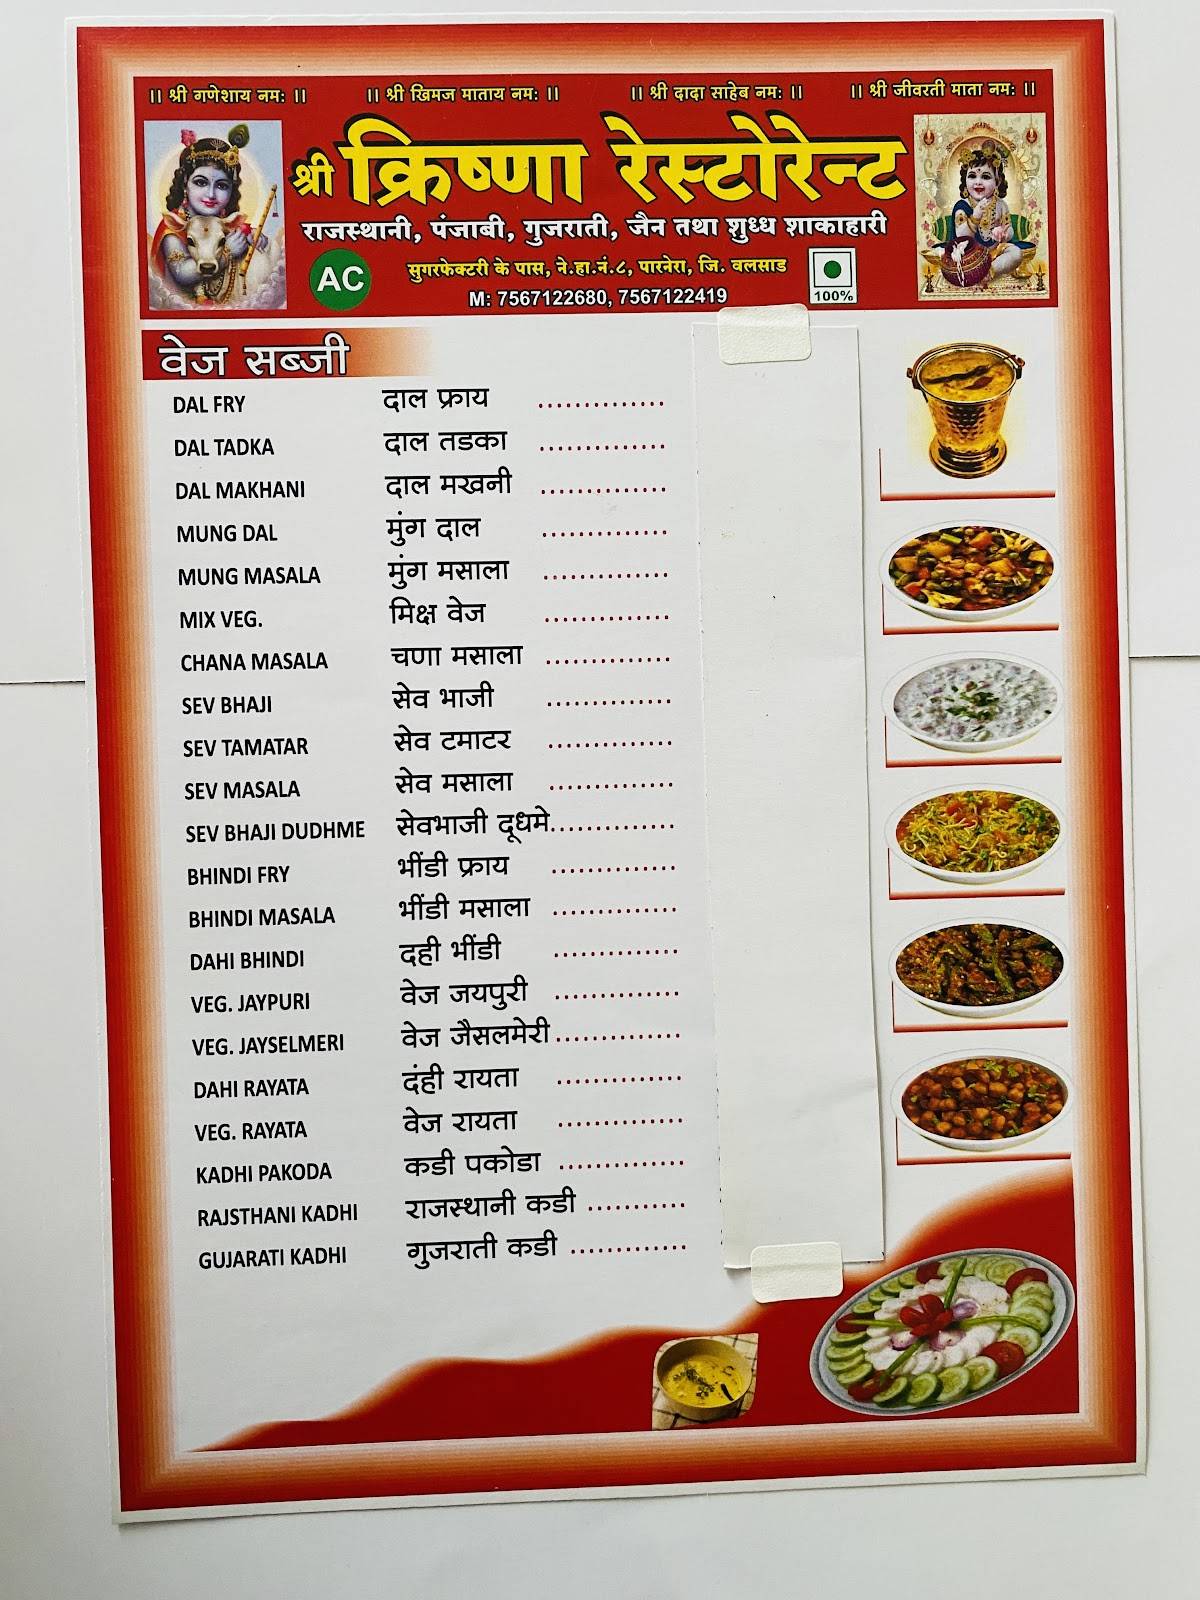 ।। श्री गणेशाय नमः ।। ।। श्री खिमज माताय नमः ।। ।। श्री दादा साहेब नमः ।। ।। श्री जीवरती माता नमः ।।
श्री क्रिष्णा रेस्टोरेन्ट
राजस्थानी, पंजाबी, गुजराती, जैन तथा शुध्ध शाकाहारी
AC सुगरफेक्टरी के पास, ने.हा.नं.८, पारनेरा, जि. वलसाड
M: 7567122680, 7567122419 100%
वेज सब्जी
DAL FRY दाल फ्राय ..............
DAL TADKA दाल तडका ..............
DAL MAKHANI दाल मखनी ..............
MUNG DAL मुंग दाल ..............
MUNG MASALA मुंग मसाला ..............
MIX VEG. मिक्ष वेज ..............
CHANA MASALA चणा मसाला ..............
SEV BHAJI सेव भाजी ..............
SEV TAMATAR सेव टमाटर ..............
SEV MASALA सेव मसाला ..............
SEV BHAJI DUDHME सेवभाजी दूधमे..............
BHINDI FRY भींडी फ्राय ..............
BHINDI MASALA भींडी मसाला ..............
DAHI BHINDI दही भींडी ..............
VEG. JAYPURI वेज जयपुरी ..............
VEG. JAYSELMERI वेज जैसलमेरी ..............
DAHI RAYATA दंही रायता ..............
VEG. RAYATA वेज रायता ..............
KADHI PAKODA कडी पकोडा ..............
RAJSTHANI KADHI राजस्थानी कडी ...........
GUJARATI KADHI गुजराती कडी .............